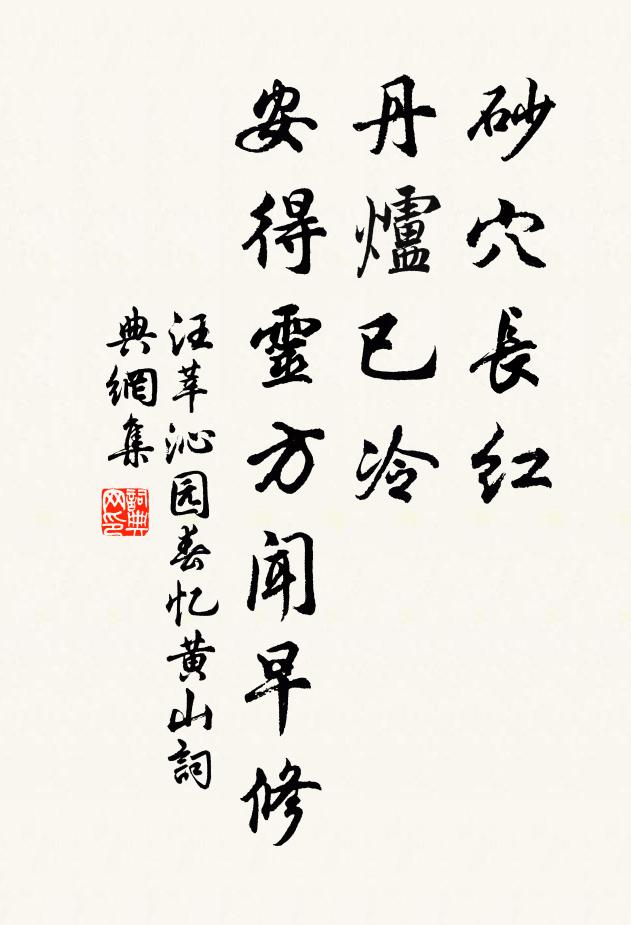 砂穴長红
丹爐已冷
安得靈方闻早修
汪莘沁园春忆黄山詞
典網集
詞典网印